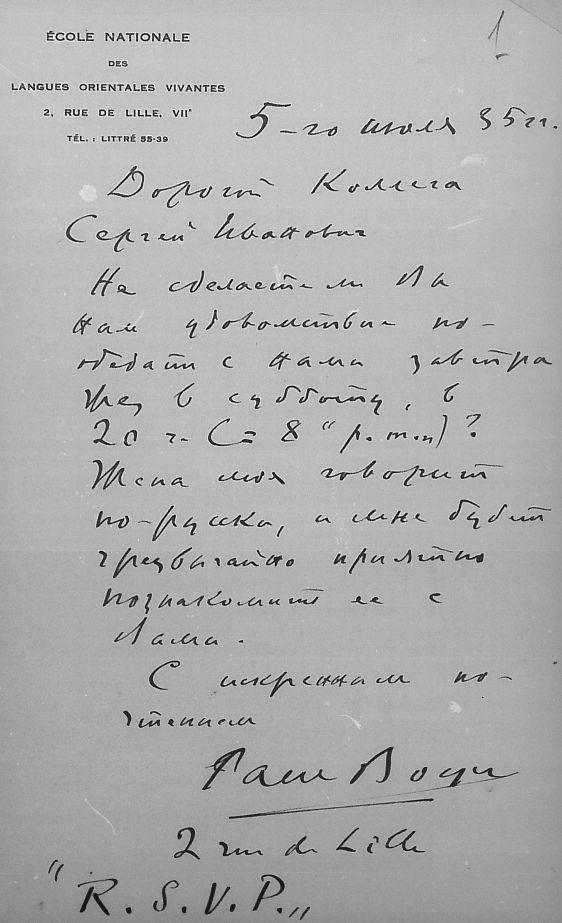 1
ÉCOLE NATIONALE
DES
LANGUES ORIENTALES VIVANTES
2, RUE DE LILLE, VIIe
TÉL. : LITTRÉ 55-39
5-го июля 35 г.
Дорогой Коллега
Сергей Иванович
Не сделаете ли Вы
нам удовольствие по-
обедать с нами завтра
в субботу, в
20 ч. (= 8 " p. m.) ?
Жена моя говорит
по-русски, и мне будет
чрезвычайно приятно
познакомить ее с
Вами.
С искренним по-
чтением
Paul Boyer
2 rue de Lille
" R. S. V. P. "